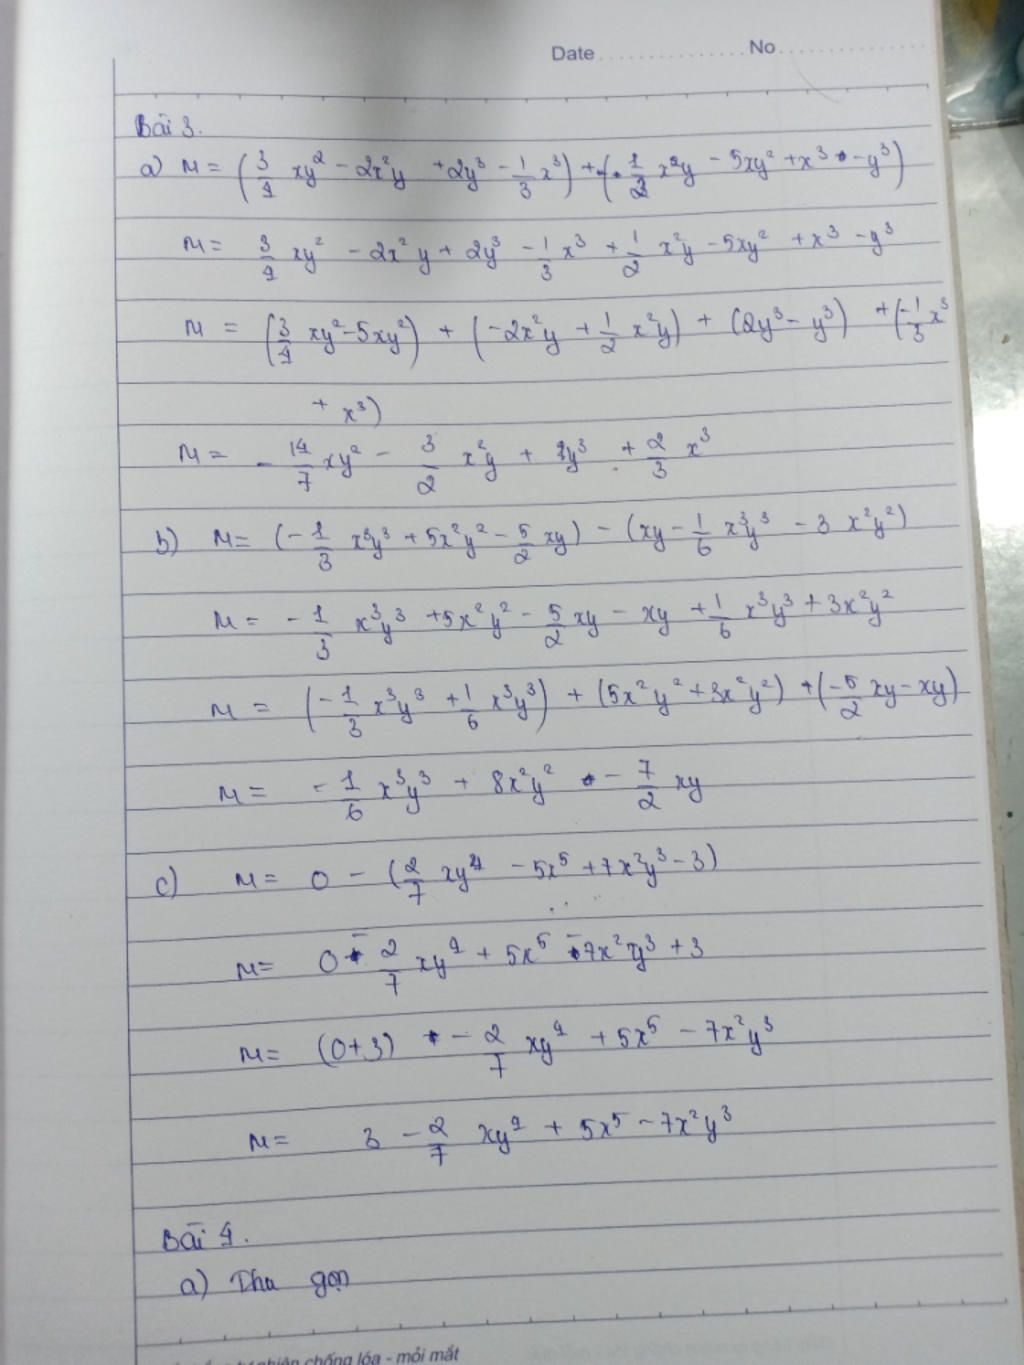 Date ............... No ...............
Bài 3.
a) M = (3/4 xy² - 2x²y + 2y³ - 1/3 x³) + (1/2 x²y - 5xy² + x³ - y³)
M = 3/4 xy² - 2x²y + 2y³ - 1/3 x³ + 1/2 x²y - 5xy² + x³ - y³
M = (3/4 xy² - 5xy²) + (-2x²y + 1/2 x²y) + (2y³ - y³) + (-1/3 x³
+ x³)
M = - 14/7 xy² - 3/2 x²y + 1y³ + 2/3 x³
b) M = (-1/3 x³y³ + 5x²y² - 5/2 xy) - (xy - 1/6 x³y³ - 3 x²y²)
M = - 1/3 x³y³ + 5x²y² - 5/2 xy - xy + 1/6 x³y³ + 3x²y²
M = (-1/3 x³y³ + 1/6 x³y³) + (5x²y² + 3x²y²) + (-5/2 xy - xy)
M = - 1/6 x³y³ + 8x²y² - 7/2 xy
c) M = 0 - (2/7 xy⁴ - 5x⁵ + 7x²y³ - 3)
M = 0 - 2/7 xy⁴ + 5x⁵ - 7x²y³ + 3
M = (0+3) - 2/7 xy⁴ + 5x⁵ - 7x²y³
M = 3 - 2/7 xy⁴ + 5x⁵ - 7x²y³
Bài 4.
a) Thu gọn
chống lóa - mỏi mắt